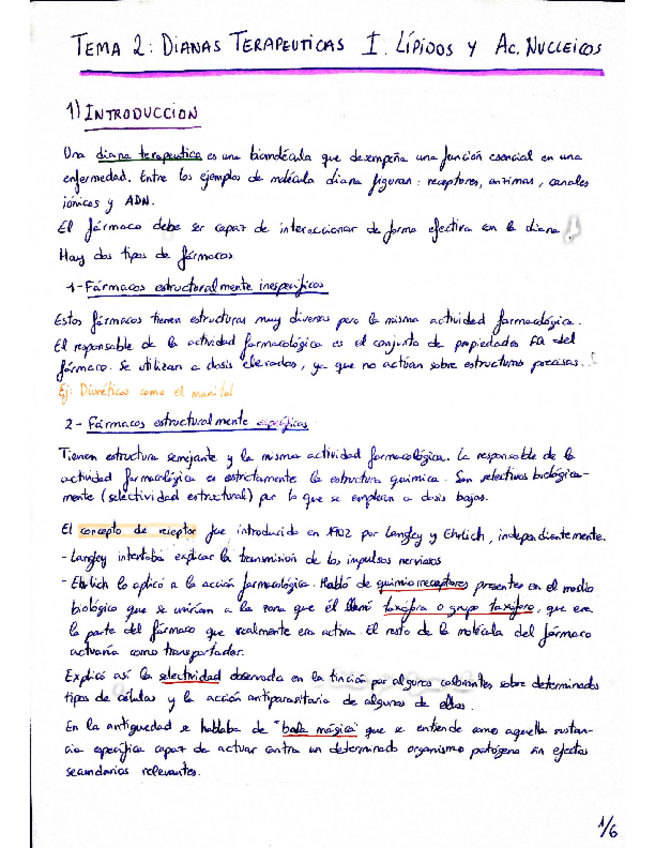 TEMA 2: DIANAS TERAPEUTICAS I. LÍPIDOS Y AC. NUCLEICOS
1) INTRODUCCION
Una diana terapeutica es una biomolécula que desempeña una función esencial en una
enfermedad. Entre los ejemplos de molécula diana figuran: receptores, enzimas, canales
iónicos y ADN.
El fármaco debe ser capaz de interaccionar de forma efectiva con la diana
Hay dos tipos de fármacos
1- Fármacos estructuralmente inespecíficos
Estos fármacos tienen estructuras muy diversas pero la misma actividad farmacológica.
El responsable de la actividad farmacológica es el conjunto de propiedades FQ del
fármaco. Se utilizan a dosis elevadas, ya que no actúan sobre estructuras precisas.
Ej: Diuréticos como el manitol
2- Fármacos estructuralmente específicos
Tienen estructura semejante y la misma actividad farmacológica. La responsable de la
actividad farmacológica es estrictamente la estructura química. Son selectivos biológica-
mente (selectividad estructural) por lo que se emplean a dosis bajas.
El concepto de receptor fue introducido en 1902 por Langley y Ehrlich, independientemente.
- Langley intentaba explicar la transmisión de los impulsos nerviosos
- Ehrlich lo aplicó a la acción farmacológica. Habló de quimiorreceptores presentes en el medio
biológico que se unirían a la zona que él llamó toxófora o grupo toxóforo, que era
la parte del fármaco que realmente era activa. El resto de la molécula del fármaco
actuaría como transportador.
Explicó así la selectividad observada en la tinción por algunos colorantes sobre determinados
tipos de células y la acción antiparasitaria de algunos de ellos.
En la antiguedad se hablaba de "bala mágica" que se entiende como aquella sustan-
cia específica capaz de actuar contra un determinado organismo patógeno sin efectos
secundarios relevantes.
1/6